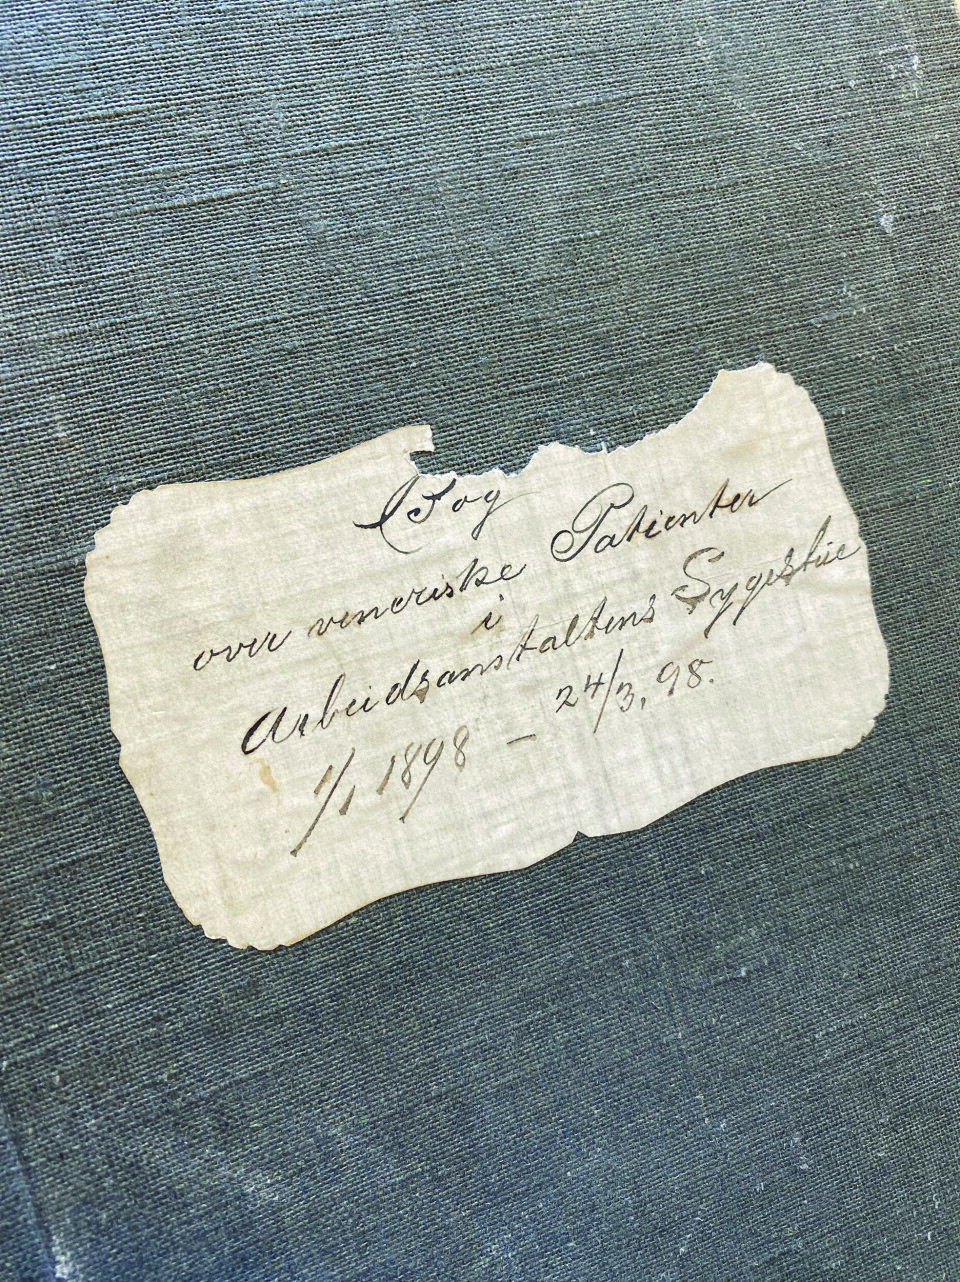 Bog
over veneriske Patienter
i
Arbeidsanstaltens Sygestue
1/1 1898 - 24/3. 98.